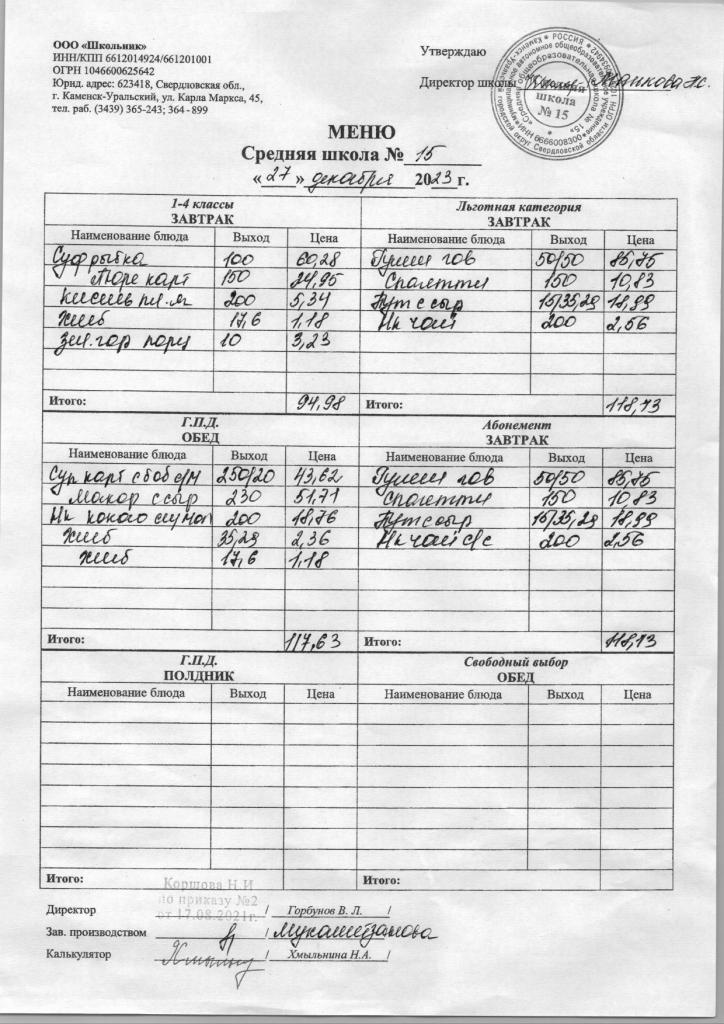 ООО «Школьник»
ИНН/КПП 6612014924/661201001
ОГРН 1046600625642
Юрид. адрес: 623418, Свердловская обл.,
г. Каменск-Уральский, ул. Карла Маркса, 45,
тел. раб. (3439) 365-243; 364 - 899
Утверждаю
Директор школы
школа
№ 15
МЕНЮ
Средняя школа № 15
«27» декабря 2023 г.
1-4 классы
ЗАВТРАК
Наименование блюда Выход Цена
Суф рыбка 100 60,28
Пюре карт 150 24,95
Кисель пл.яг 200 5,34
Хлеб 17,6 1,18
Зел.гор порц 10 3,23
Итого: 94,98
Льготная категория
ЗАВТРАК
Наименование блюда Выход Цена
Гуляш гов 50/50 86,75
Спагетти 150 10,83
Бут с сыр 15/35,29 18,99
Нк чай 200 2,56
Итого: 118,73
Г.П.Д.
ОБЕД
Наименование блюда Выход Цена
Суп карт с боб с/м 250/20 43,62
Макар с сыр 230 51,71
Нк какао 200 18,76
Хлеб 35,29 2,36
Хлеб 17,6 1,18
Итого: 117,63
Абонемент
ЗАВТРАК
Наименование блюда Выход Цена
Гуляш гов 50/50 86,75
Спагетти 150 10,83
Бут с сыр 15/35,29 18,99
Нк чай с/с 200 2,56
Итого: 118,13
Г.П.Д.
ПОЛДНИК
Наименование блюда Выход Цена
Итого:
Свободный выбор
ОБЕД
Наименование блюда Выход Цена
Итого:
Коршова Н.И
по приказу №2
от 17.08.2021г.
Директор / Горбунов В. Л. /
Зав. производством / Мукашебзанова
Калькулятор / Хмыльнина Н.А. /